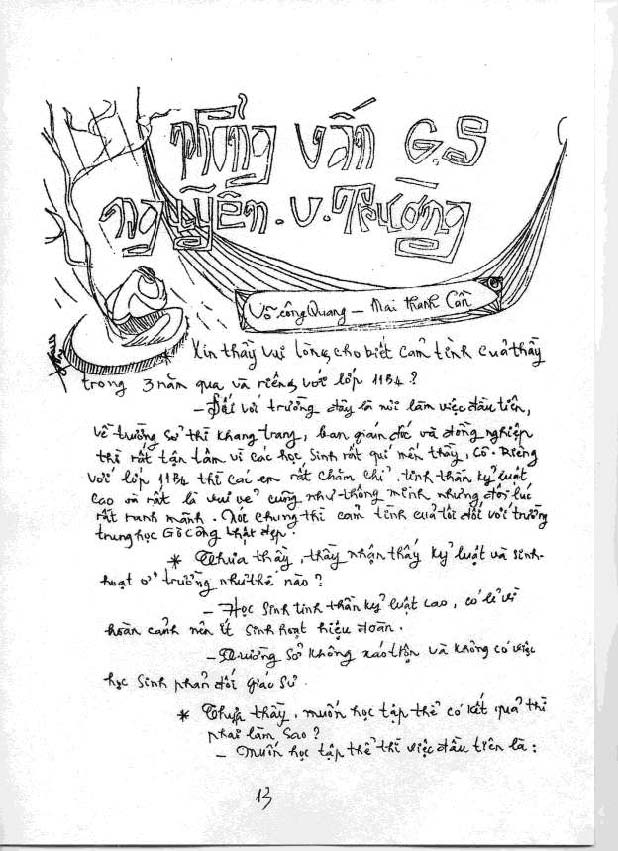 Phỏng vấn G.S
Nguyễn.V.Trường
Võ công Quang - Mai thanh Cần
* Xin thầy vui lòng cho biết cảm tình của thầy
trong 3 năm qua và riêng với lớp 11B4 ?
- Đối với trường đây là nơi làm việc đầu tiên,
về trường sở thì khang trang, ban giám đốc và đồng nghiệp
thì rất tận tâm vì các học sinh rất quí mến thầy, cô. Riêng
với lớp 11B4 thì các em rất chăm chỉ, tinh thần kỷ luật
cao và rất là vui vẻ cũng như thông minh nhưng đôi lúc
rất ranh mãnh. Nói chung thì cảm tình của tôi đối với trường
trung học Gò Công thật đẹp.
* Thưa thầy, thầy nhận thấy kỷ luật và sinh-
hoạt ở trường như thế nào ?
- Học sinh tinh thần kỷ luật cao, có lẽ vì
hoàn cảnh nên ít sinh hoạt hiệu đoàn.
- Trường sở không xáo trộn và không có việc
học sinh phản đối giáo sư.
* Thưa thầy, muốn học tập thể có kết quả thì
phải làm sao ?
- Muốn học tập thể thì việc đầu tiên là :
13